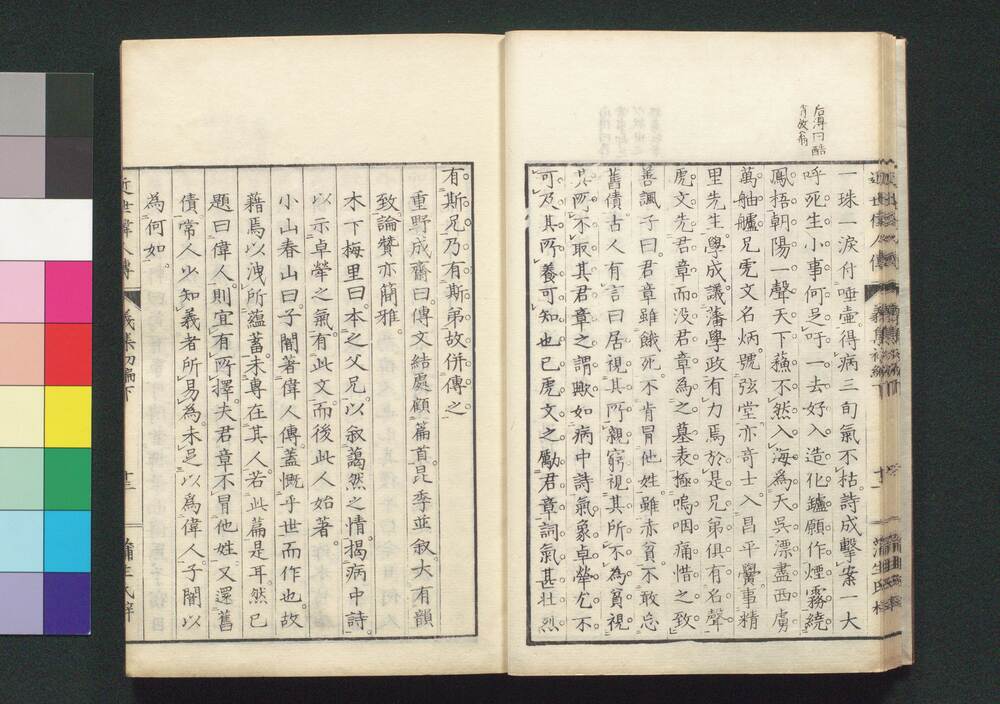 后澤曰酷
一珠一淚付唾壷得病三旬氣不枯詩成擊案一大
呼死生小事何足吁一去好入造化鑪願作煙霧繞
鳳梧朝陽一聲天下蘓不然入海為天吳漂盡西虜
萬舳艫兄虎文名炳號弦堂亦奇士入昌平黌事精
里先生學成議藩學政有力焉於是兄弟俱有名聲
虎文先君章而没君章為之墓表極嗚咽痛惜之致
善諷子曰君章雖餓死不肯冒他姓雖赤貧不敢忘
舊債古人有言曰居視其所親窮視其所不為貧視
其所不取其君章之謂歟如病中詩氣象卓犖尤不
可及其所養可知也已虎文之勵君章詞氣甚壮烈
有斯兄乃有斯弟故併傳之
重野成齋曰傳文結處顧篇首昆季並叙大有韻
致論贊亦簡雅
木下梅里曰本之父兄以叙藹然之情揭病中詩
以示卓犖之氣有此文而後此人始著
小山春山曰子闇著偉人傳蓋慨乎世而作也故
藉焉以洩所蘊蓄未專在其人若此篇是耳然已
題曰偉人則宜有所擇夫君章不冒他姓又還舊
債常人少知義者所易為未足以爲偉人子闇以
為何如
近世偉人傳 義集初編下 十二 蒲生氏梓